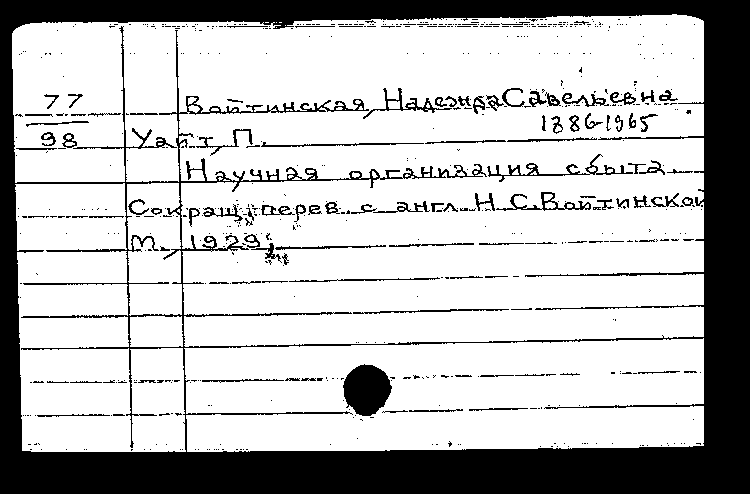 77 Войтинская, Надежда Савельевна
1886-1965
98 Уайт, П.
Научная организация сбыта.
Сокращ. перев. с англ. Н.С.Войтинской
М., 1929;